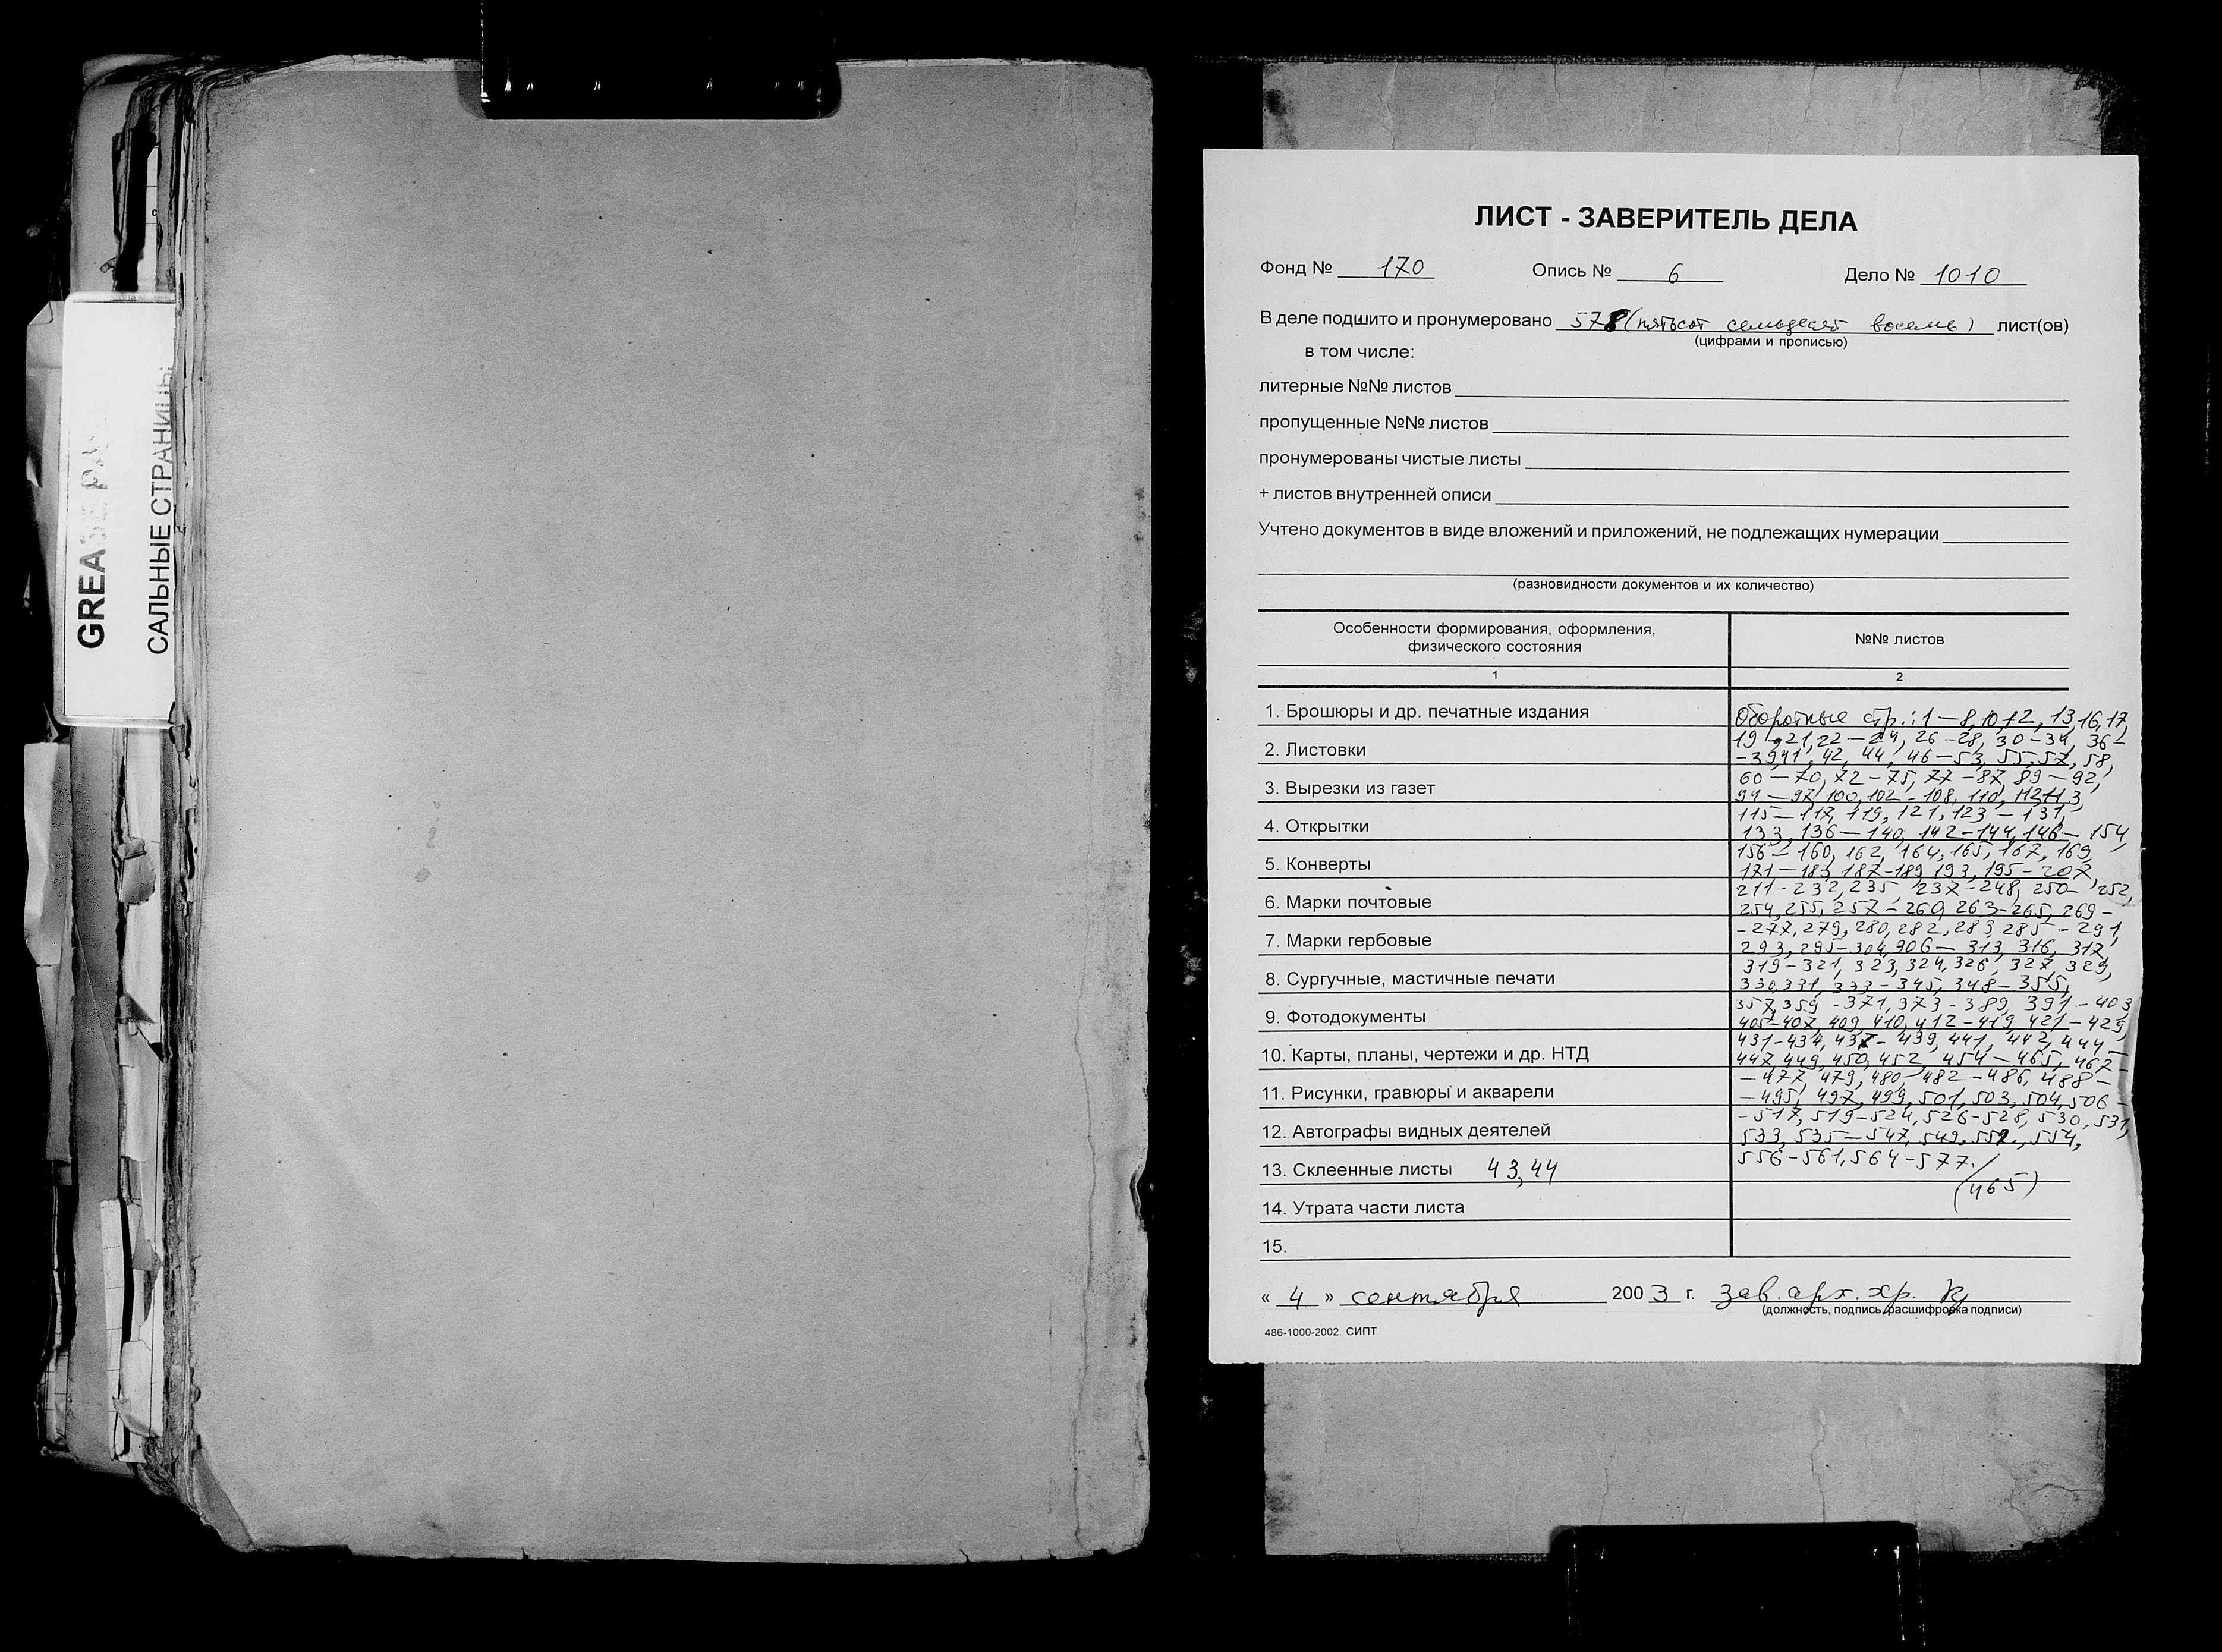 GREASE PA
САЛЬНЫЕ СТРАНИЦЫ
ЛИСТ - ЗАВЕРИТЕЛЬ ДЕЛА
Фонд № 170 Опись № 6 Дело № 1010
В деле подшито и пронумеровано 578 (пятьсот семьдесят восемь) лист(ов)
(цифрами и прописью)
в том числе:
литерные №№ листов
пропущенные №№ листов
пронумерованы чистые листы
+ листов внутренней описи
Учтено документов в виде вложений и приложений, не подлежащих нумерации
(разновидности документов и их количество)
Особенности формирования, оформления,
физического состояния
№№ листов
1
2
1. Брошюры и др. печатные издания
2. Листовки
3. Вырезки из газет
4. Открытки
5. Конверты
6. Марки почтовые
7. Марки гербовые
8. Сургучные, мастичные печати
9. Фотодокументы
10. Карты, планы, чертежи и др. НТД
11. Рисунки, гравюры и акварели
12. Автографы видных деятелей
13. Склеенные листы 43,44
14. Утрата части листа
15.
Оборотные стр.: 1 – 8, 10, 12, 13, 16, 17,
19, 21, 22 – 24, 26 – 28, 30 – 34, 36 –
– 39, 41, 42, 44, 46 – 53, 55, 57, 58,
60 – 70, 72 – 75, 77 – 87, 89 – 92,
94 – 97, 100, 102 – 108, 110, 112, 113,
115 – 117, 119, 121, 123 – 131,
133, 136 – 140, 142 – 144, 146 – 154,
156 – 160, 162, 164, 165, 167, 169,
171 – 183, 187 – 189, 193, 195 – 207,
211 – 232, 235, 237 – 248, 250 – 252,
254, 255, 257 – 260, 263 – 265, 269 –
– 277, 279, 280, 282, 283, 285 – 291,
293, 295 – 304, 306 – 313, 316, 317,
319 – 321, 323, 324, 326, 327, 329,
330, 331, 333 – 345, 348 – 355,
357, 359 – 371, 373 – 389, 391 – 403,
405 – 407, 409, 410, 412 – 419, 421 – 429,
431 – 434, 437 – 439, 441, 442, 444 –
447, 449, 450, 452, 454 – 465, 467 –
– 477, 479, 480, 482 – 486, 488 –
– 495, 497, 499, 501, 503, 504, 506 –
– 517, 519 – 524, 526 – 528, 530, 531,
533, 535 – 547, 549, 554,
556 – 561, 564 – 577.
(465)
« 4 » сентября 2003 г. зав. арх. хр.
(должность, подпись, расшифровка подписи)
486-1000-2002. СИПТ